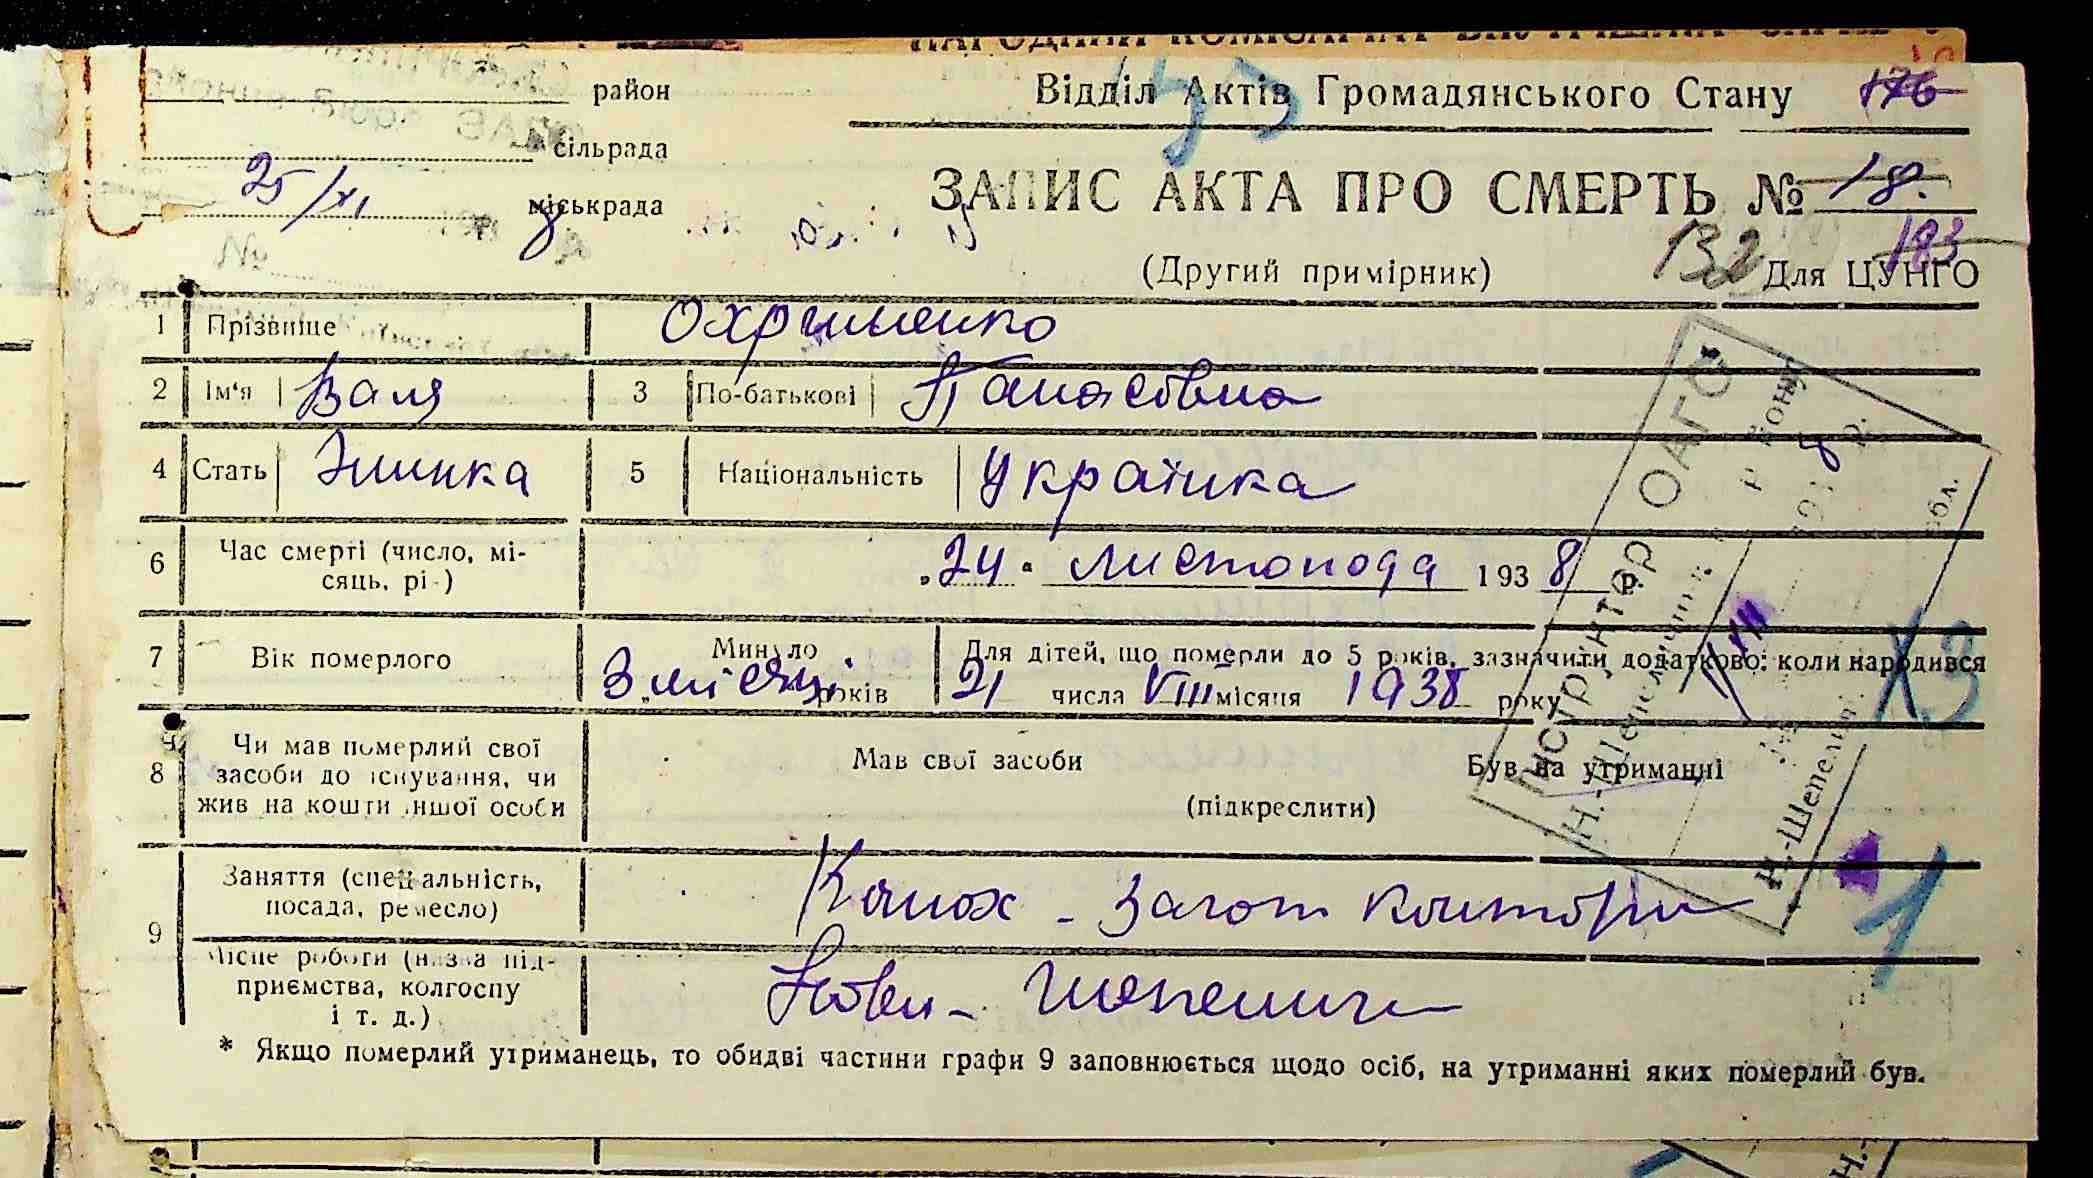 район
Відділ Актів Громадянського Стану 176
сільрада
25/XI міськрада
ЗАПИС АКТА ПРО СМЕРТЬ № 18.
132 183
(Другий примірник) Для ЦУНГО
1 Прізвище Охрименко
2 Ім'я Валя 3 По-батькові Панасовна
4 Стать Жинка 5 Національність Українка
6 Час смерті (число, мі-
сяць, рі-) „24" листопода 1938 р.
7 Вік померлого 3 місяці Минуло років Для дітей, що померли до 5 років, зазначити додатково: коли народився
21 числа VIII місяця 1938 року
8 Чи мав померлий свої
засоби до існування, чи
жив на кошти іншої особи
Мав свої засоби Був на утриманні
(підкреслити)
9 Заняття (спеціальність,
посада, ремесло) Конюх - Загот контори
Місце роботи (назва під-
приємства, колгоспу
і т. д.) Нови - Шепеличи
* Якщо померлий утриманець, то обидві частини графи 9 заповнюється щодо осіб, на утриманні яких померлий був.
ІНСТРУКТОР ОАГС
Н.-Шепелич
Х3
1